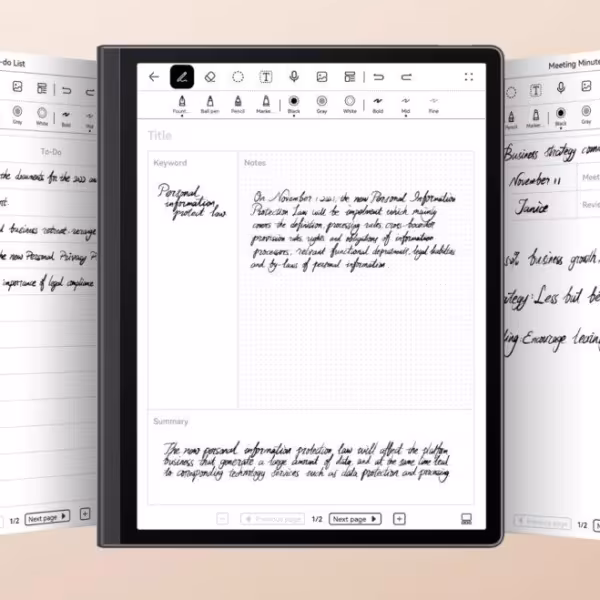 -do List
Gray White Bold Mid
To-Do
the documents for the 2022 an
st.
d business retreat
he new Personal Privacy P
importance of legal compliance
1/2 Next page
T
Fount... Ball pen Pencil Marke... Black Gray White Bold Mid Fine
Title
Keyword
Personal
information
protect law
Notes
On November 1 2021, the new Personal Information
Protection Law will be implement which mainly
covers the definition, processing rules, cross-boarder
provision rules, rights and obligations of information
processors, relevant functional department, legal liabilities
and by-laws of personal information
Summary
The new personal information protection law will affect the platform
business that generate a large amount of data, and at the same time lead
to corresponding technology services such as data protection and
Previous page 1/2 Next page
Meeting Minute
T
Pencil Marke... Black Gray
Business strategy comm
November 11 Meet
Janice Revie
business growth,
ategy: Less but be
ing: Encourage
Previous page 1/2 N